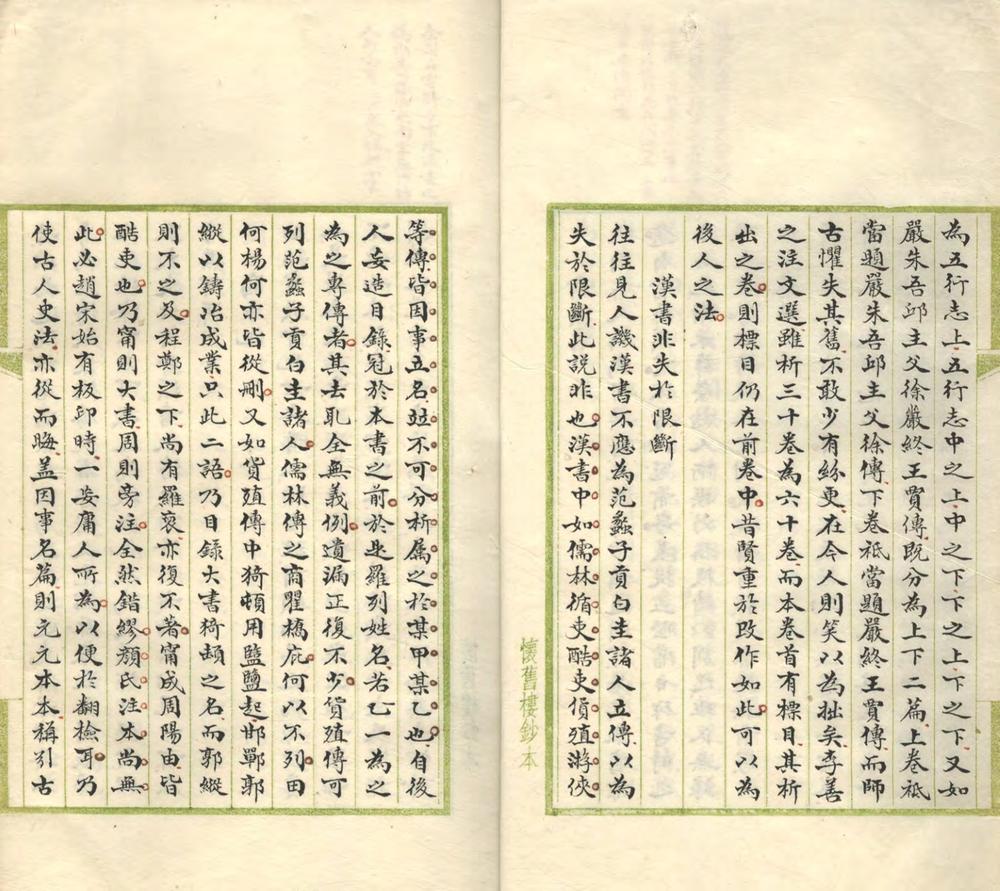 為五行志上五行志中之上中之下下之上下之下又如
嚴朱吾邱主父徐嚴終王賈傳既分為上下二篇上卷祗
當題嚴朱吾邱主父徐傳下卷祗當題嚴終王賈傳而師
古懼失其舊不敢少有紛更在今人則笑以為拙矣李善
之注文選雖析三十卷為六十卷而本卷首有標目其析
出之卷則標目仍在前卷中昔賢重於改作如此可以為
後人之法
漢書非失於限斷
往往見人譏漢書不應為范蠡子貢白圭諸人立傳以為
失於限斷此說非也漢書中如儒林循吏酷吏貨殖游俠
懷舊樓鈔本
等傳皆因事立名竝不可分析屬之於某甲某乙也自後
人妄造目錄冠於本書之前於是羅列姓名若乙一為之
為之專傳者其去取全無義例遺漏正復不少貨殖傳可
列范蠡子貢白圭諸人儒林傳之商瞿橋庇何以不列田
何楊何亦皆從刪又如貨殖傳中猗頓用盬鹽起邯鄲郭
縱以鑄冶成業只此二語乃目錄大書猗頓之名而郭縱
則不之及程鄭之下尚有羅裒亦復不著甯成周陽由皆
酷吏也乃甯則大書周則旁注全然錯繆顏氏注本尚無
此必趙宋始有板印時一妄庸人所為以便於翻檢耳乃
使古人史法亦從而晦蓋因事名篇則元元本本稱引古